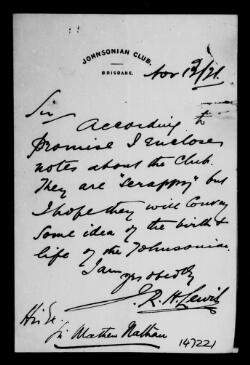 JOHNSONIAN CLUB.
BRISBANE.
Nov 12/21.
Sir
According to
promise I enclose
notes about the Club.
They are "scrappy" but
I hope they will convey
some idea of the birth &
life of the Johnsonian.
I am
yrs obedtly
J. R. H. Lewis
His Ex.
Sir Mathew Nathan
147221